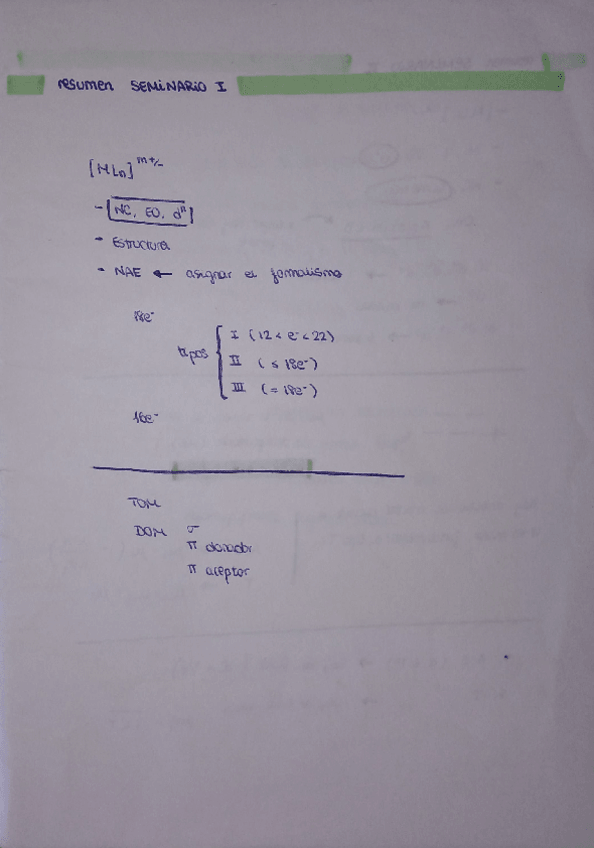 resumen SEMINARIO I
[MLn]^m+/-
- [NC, EO, dⁿ]
- Estructura
- NAE ← asignar el formalismo
18e⁻
tipos
I (12 < e⁻ < 22)
II (≤ 18e⁻)
III (= 18e⁻)
16e⁻
TOM
DOM σ
π donador
π aceptor